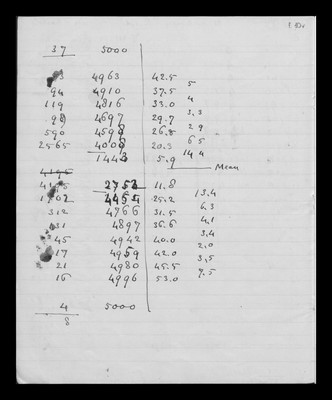 37 5000
4963 42.5
5
94 4910 37.5
4
119 4816 33.0
3,3
98 4697 29.7
2 9
590 4599 26.8
6 5
2565 4008 20.3
14 4
1443 5.9
Mean
2753 11.8
13.4
4455 25.2
6.3
312 4766 31.5
4.1
131 4897 35.6
3.4
45 4942 40.0
2.0
17 4959 42.0
3,5
21 4980 45.5
7.5
16 4996 53.0
4 5000
8